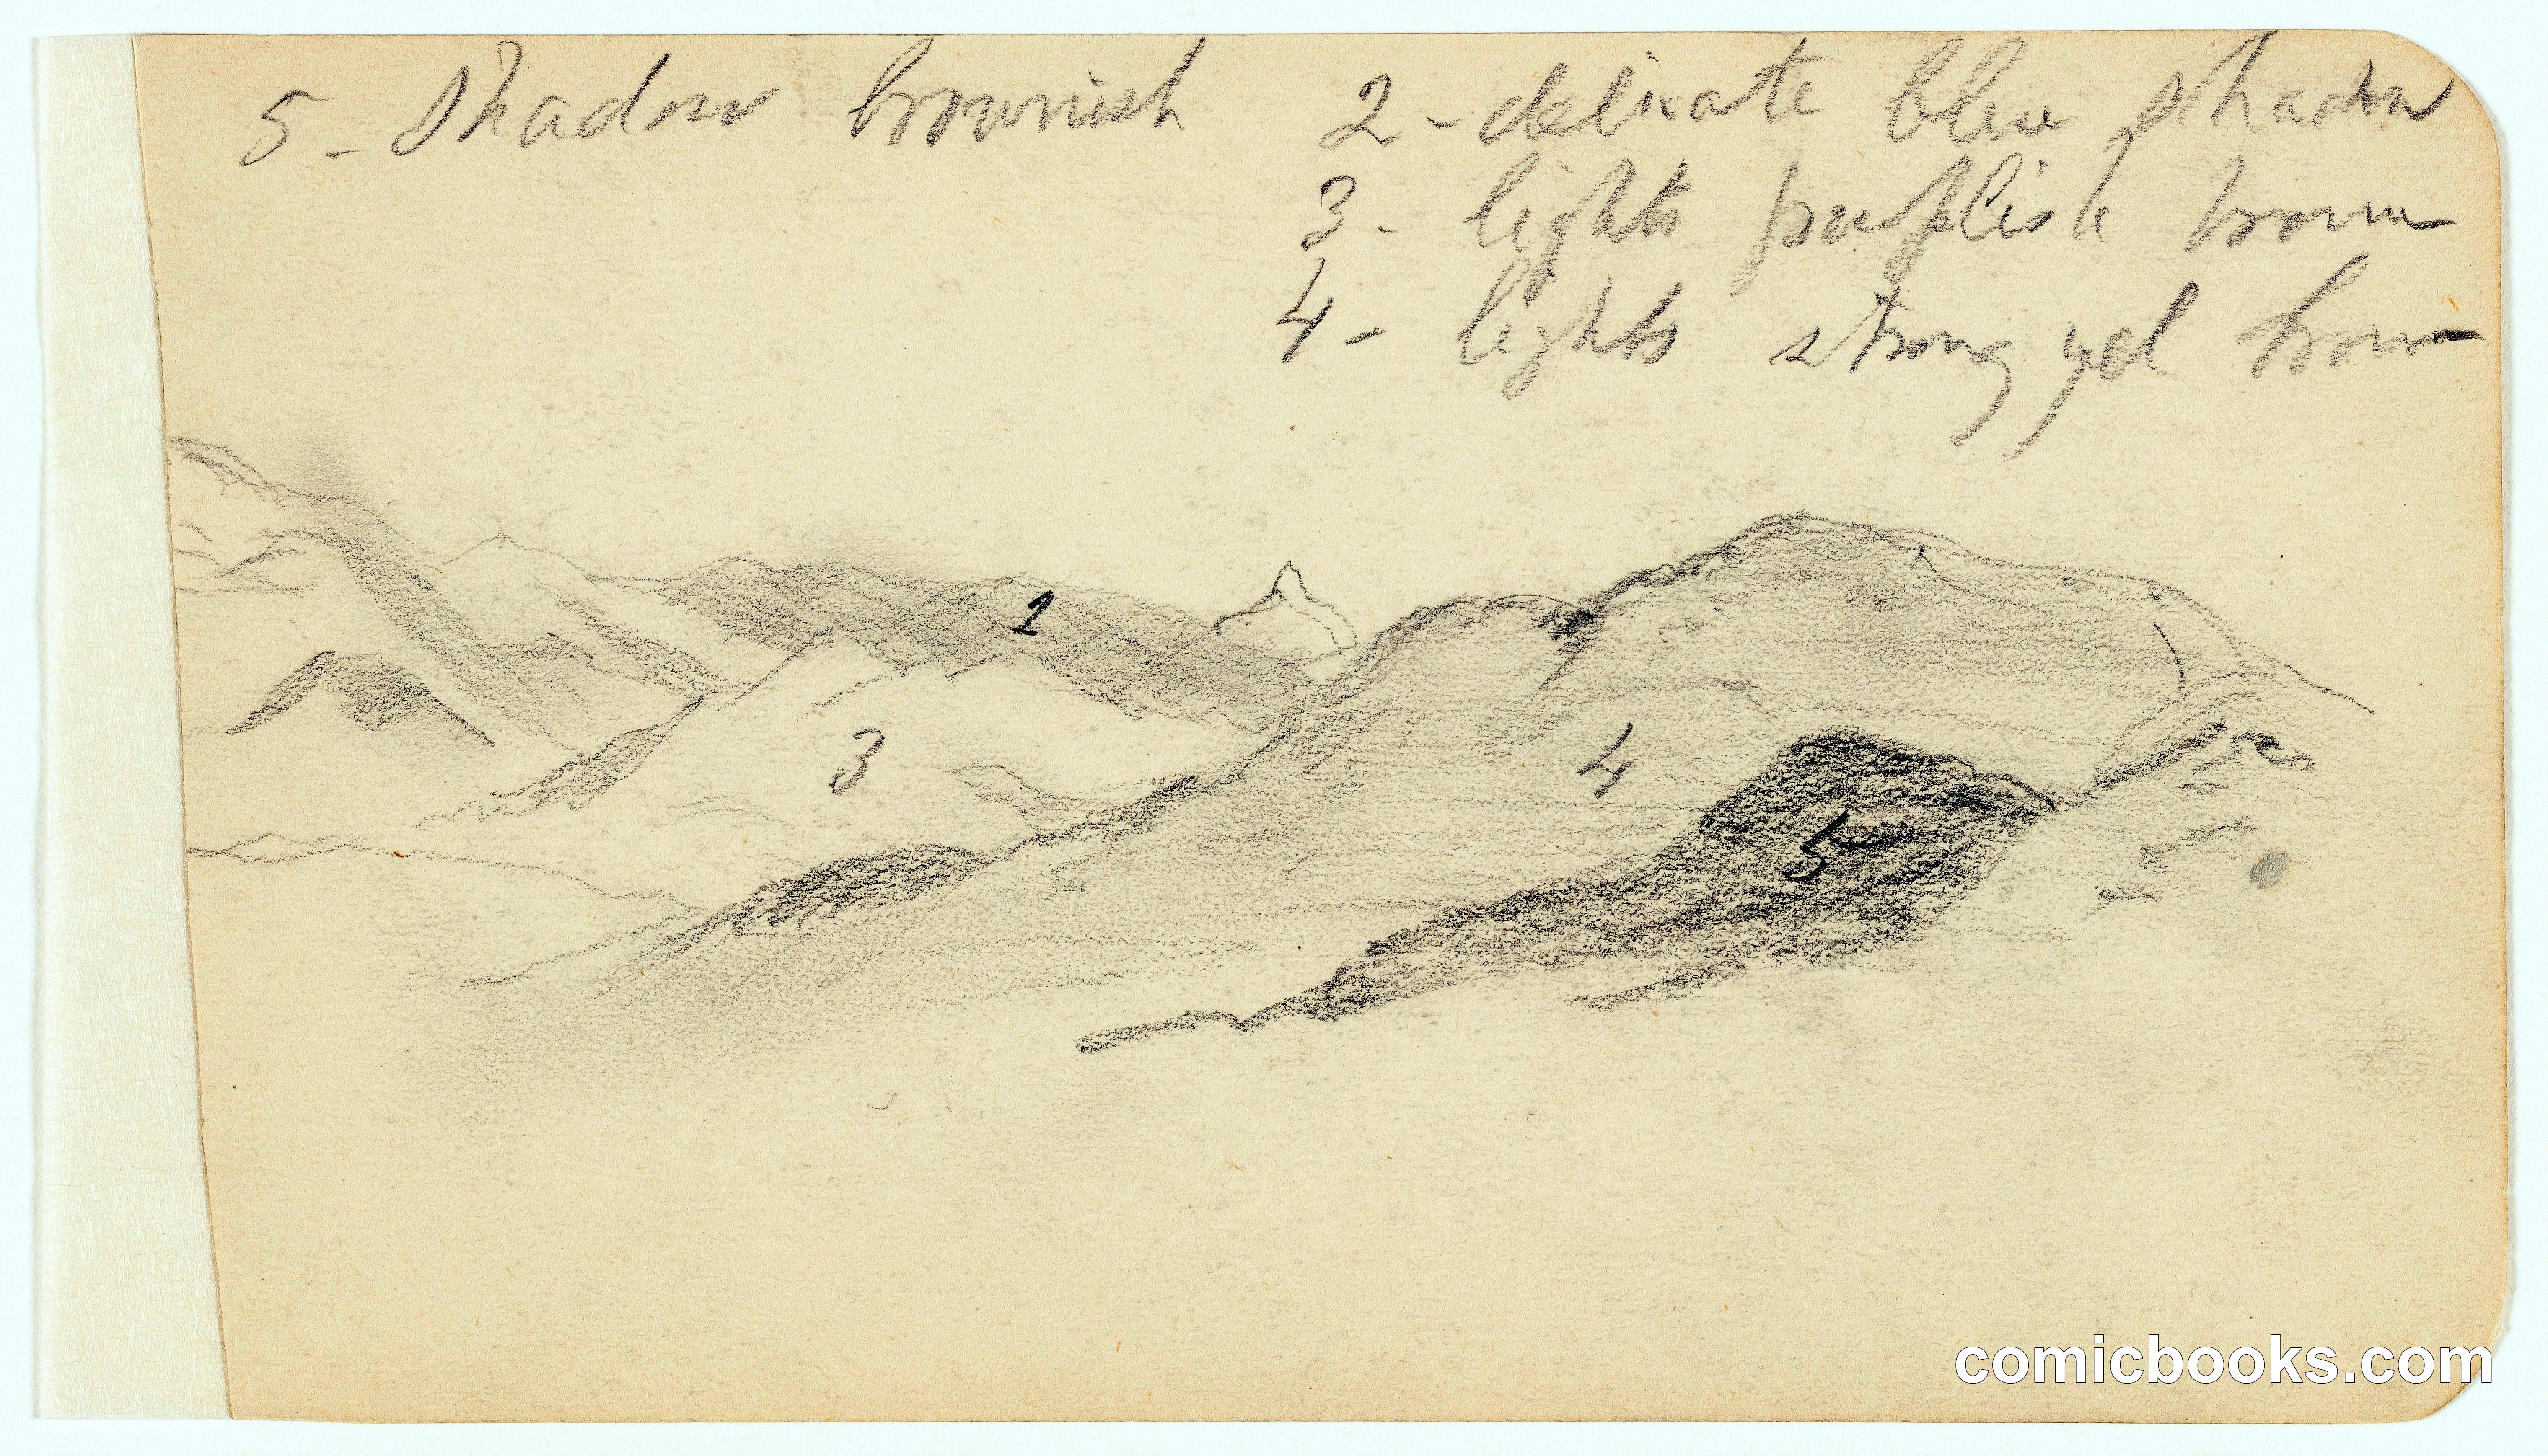 5 - Shadow brownish
2 - delicate blue shadow
3 - lights purplish brown
4 - lights strong yel brown
1
3
4
5
comicbooks.com